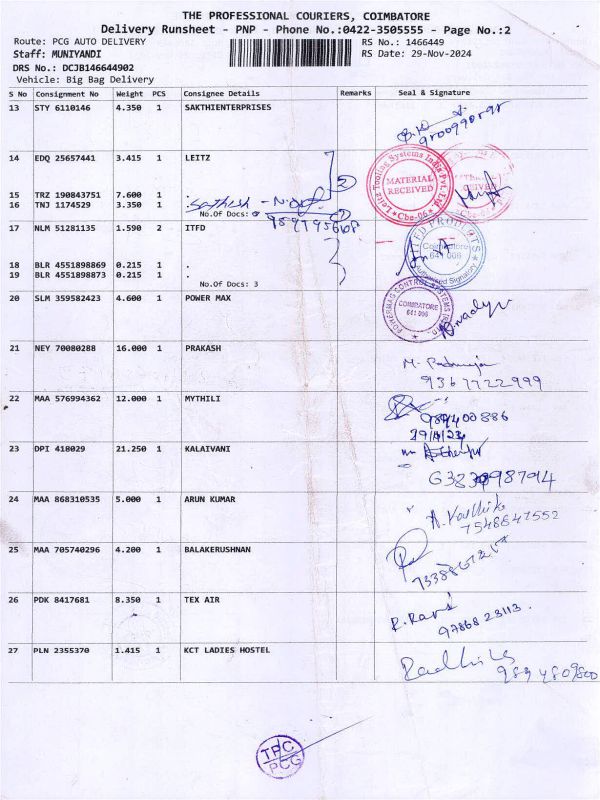 THE PROFESSIONAL COURIERS, COIMBATORE
Delivery Runsheet - PNP - Phone No.:0422-3505555 - Page No.:2
Route: PCG AUTO DELIVERY
RS No.: 1466449
Staff: MUNIYANDI
RS Date: 29-Nov-2024
DRS No.: DCJB146644902
Vehicle: Big Bag Delivery
S No Consignment No Weight PCS Consignee Details Remarks Seal & Signature
13 STY 6110146 4.350 1 SAKTHIENTERPRISES
9700990898
14 EDQ 25657441 3.415 1 LEITZ
Leitz Tooling Systems India Pvt. Ltd.
MATERIAL RECEIVED
Cbe-06
15 TRZ 190843751 7.600 1 .
16 TNJ 1174529 3.350 1 .
Sathish
No.Of Docs:
17 NLM 51281135 1.590 2 ITFD
Coimbatore
641 006
Authorised Signatory
18 BLR 4551898869 0.215 1 .
19 BLR 4551898873 0.215 1 .
No.Of Docs: 3
20 SLM 359582423 4.600 1 POWER MAX
POWERMAG CONTROL SYSTEMS
COIMBATORE
641 006
21 NEY 70080288 16.000 1 PRAKASH
9367722999
22 MAA 576994362 12.000 1 MYTHILI
989400886
29/11/24
23 DPI 418029 21.250 1 KALAIVANI
24 MAA 868310535 5.000 1 ARUN KUMAR
7548847552
25 MAA 705740296 4.200 1 BALAKERUSHNAN
26 PDK 8417681 8.350 1 TEX AIR
R. Rani
9786823113.
27 PLN 2355370 1.415 1 KCT LADIES HOSTEL
Radhika
9894809800
TPC
PCG